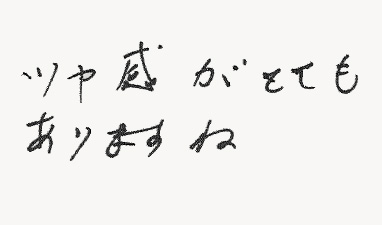 ツヤ感がとても
ありますね